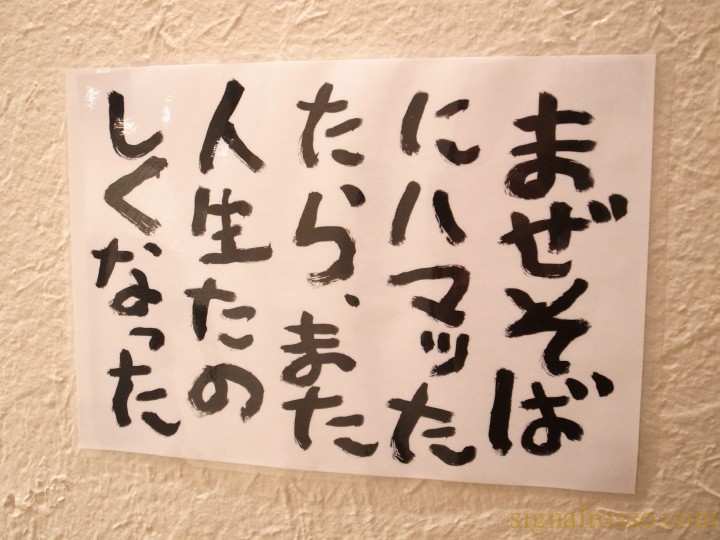 まぜそば
にハマッた
たら、また
人生たの
しくなった
signalrosso.com